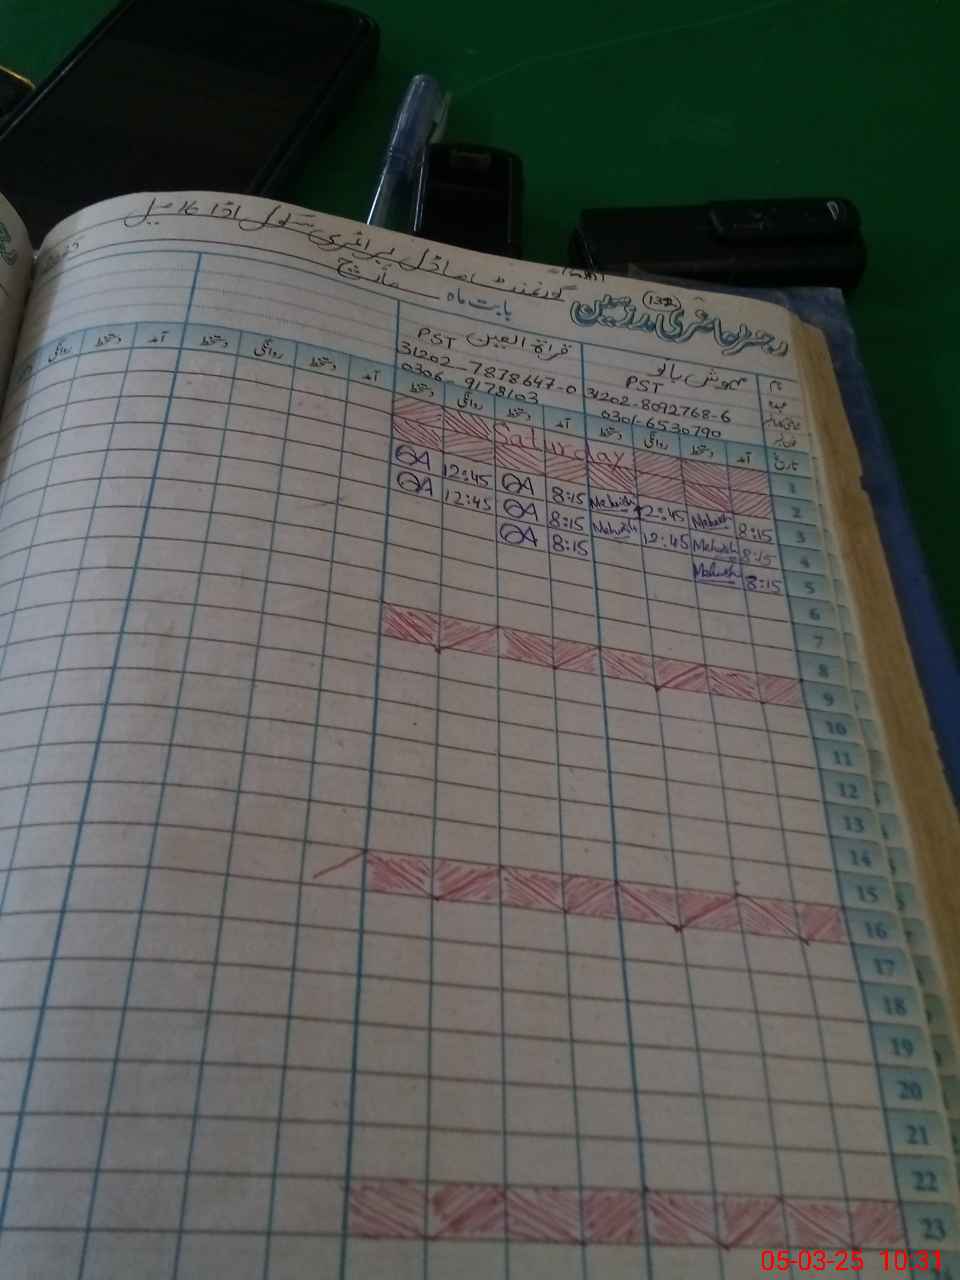 گورنمنٹ ماڈل پرائمری سکول اڈا 16 میل
رجسٹر حاضری مدرسین
(132)
بابت ماہ مارچ
نام
مہوش بانو
قراۃ العین
عہدہ
PST
PST
31202-8092768-6
31202-7878647-0
0301-6530790
0306-9178103
تاریخ آمد دستخط روانگی دستخط آمد دستخط روانگی دستخط آمد دستخط روانگی دستخط آمد دستخط روانگی
1
Saturday
2
3 8:15 Mehwish 12:45 Mehwish 8:15 QA 12:45 QA
4 8:15 Mehwish 12:45 Mehwish 8:15 QA 12:45 QA
5 8:15 Mehwish 8:15 QA
6
7
8
9
10
11
12
13
14
15
16
17
18
19
20
21
22
23
05-03-25 10:31